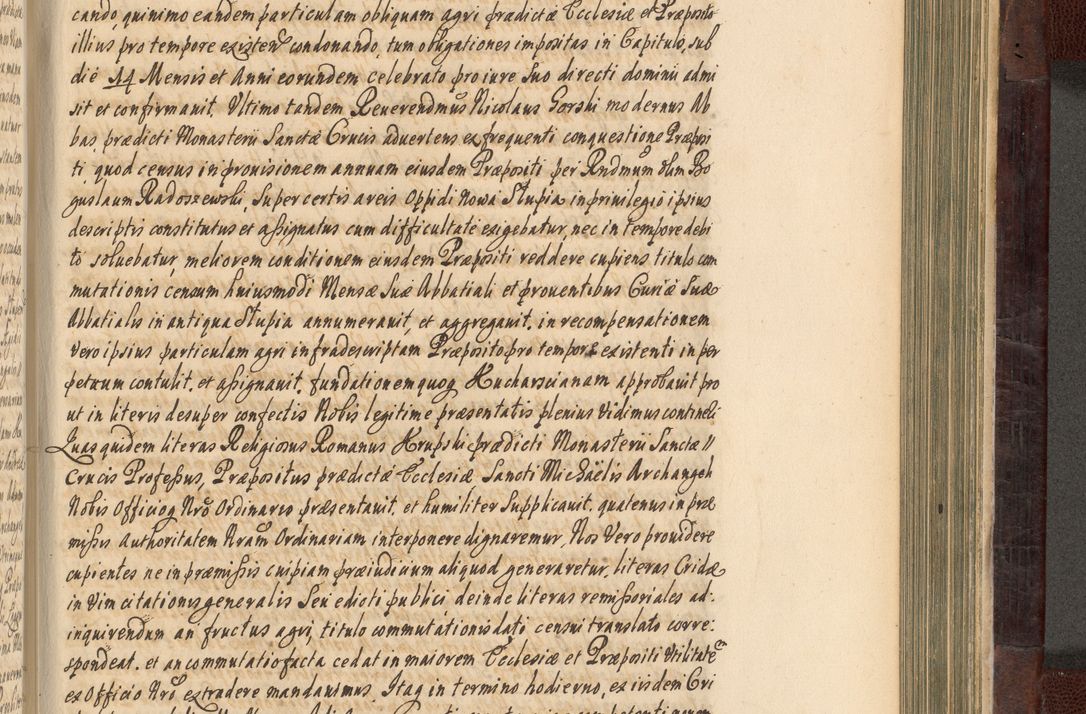 cando, quinimo eandem particulam obliquam agri prædictæ Ecclesiæ et Præposito
illius pro tempore existen condonando, tum obligationes impositas in Capitulo, sub
die 14 Mensis et Anni eorundem celebrato pro iure suo directi dominii admi
sit et confirmauit. Vltimo tandem Reuerendmus Nicolaus Gorski modernus Ab
bas prædicti Monasterii Sanctæ Crucis aduertens ex frequenti conquestione Præposi
ti quod census in prouisionem annuam eiusdem Præpositi per Rndmum olim Bo
guslaum Radoszewski, super certis areis Oppidi Nowa Słupia in priuilegio ipsius
descriptis constitutus et assignatus cum difficultate exigebatur, nec in tempore debi
to soluebatur, meliorem conditionem eiusdem Præpositi reddere cupiens titulo com
mutationis censum huiusmodi Mensæ suæ Abbatiali et prouentibus Curiæ suæ
Abbatialis in antiqua Słupia annumerauit, et aggregauit. in recompensationem
vero ipsius particulam agri infradescriptam Præposito pro tempore existenti in per
petuum contulit. et assignauit. fundationemquoq Kucharscianam approbauit pro
ut in literis desuper confectis Nobis legitime præsentatis plenius vidimus contineri
Quas quidem literas Religiosus Romanus Krupski prædicti Monasterii Sanctæ //
Crucis Professus, Præpositus prædictæ Ecclesiæ Sancti Michaëlis Archangeli
Nobis Officioq Nrõ Ordinario præsentauit, et humiliter supplicauit. quatenus in præ
missis Authoritatem Nram Ordinariam interponere dignaremur, Nos Vero prouidere
cupientes ne in præmissis cuipiam præiudicium aliquod generaretur, literas Cridæ
in vim citationis generalis seu edicti publici deinde literas remissoriales ad:
inquirendum an fructus agri, titulo commutationis dati censui translato corre:
spondeat. et an commutatio facta cedat in maiorem Ecclesiæ et Præpositi vtilitatẽ
ex Officio Nrõ extradere mandauimus. Itaq in termino hodierno, ex iisdem Cri